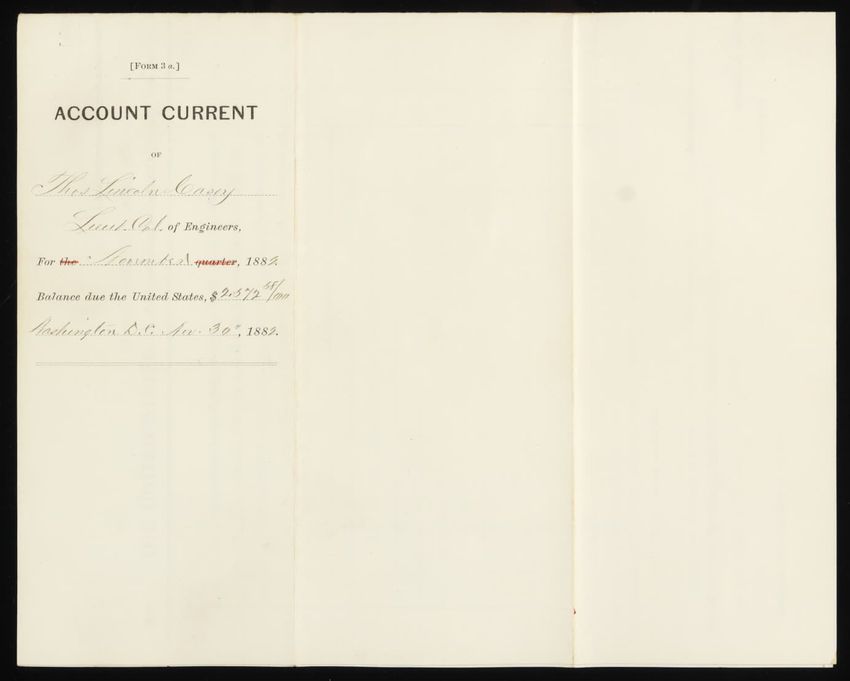 [FORM 3 a.]
ACCOUNT CURRENT
OF
Thos Lincoln Casey
Lieut. Col. of Engineers,
For the November quarter, 1882.
Balance due the United States, $2,572 58/100
Washington D.C. Nov. 30", 1882.